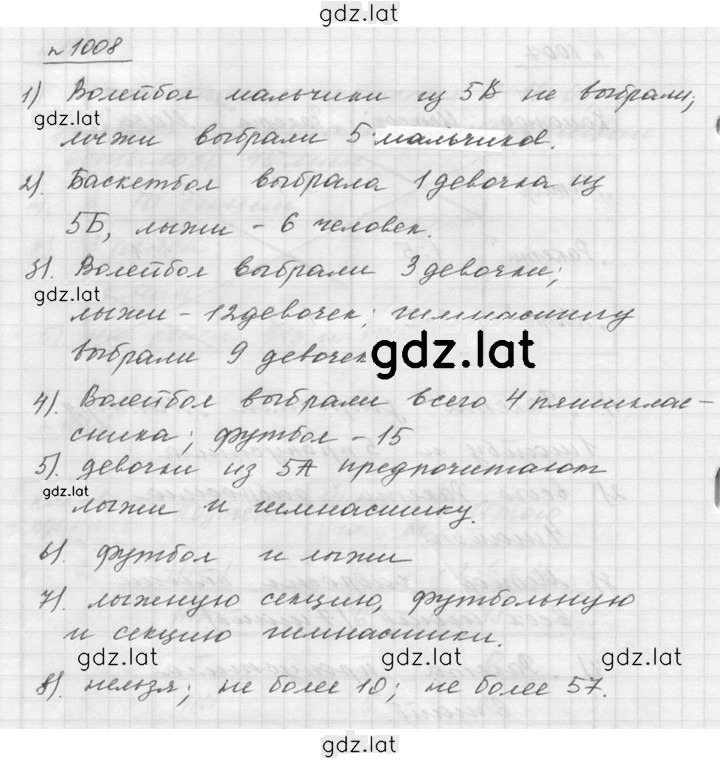 gdz.lat
№ 1008
1) Волейбол мальчики из 5В не выбрали;
gdz.lat
лыжи выбрали 5 мальчиков.
2). Баскетбол выбрала 1 девочка из
5Б, лыжи - 6 человек.
3). Волейбол выбрали 3 девочки;
gdz.lat
лыжи - 12 девочек; гимнастику
выбрали 9 девочек
gdz.lat
4). Волейбол выбрали всего 4 пятиклас-
сника; футбол - 15
5). девочки из 5А предпочитают
gdz.lat
лыжи и гимнастику.
6). футбол и лыжи
7). лыжную секцию, футбольную
и секцию гимнастики.
gdz.lat gdz.lat
8). нельзя; не более 10; не более 57.
gdz.lat